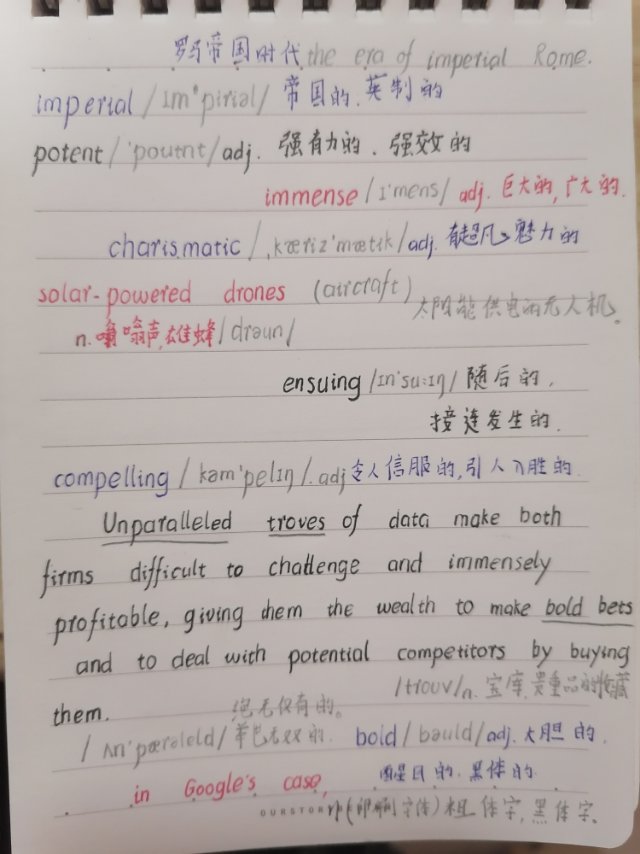 罗马帝国时代 the era of imperial Rome.
imperial /ɪmˈpɪriəl/ 帝国的, 英制的
potent /ˈpoutnt/ adj. 强有力的、强效的
immense /ɪˈmens/ adj. 巨大的, 广大的.
charismatic /ˌkærizˈmætik/ adj. 有超凡魅力的
solar-powered drones (aircraft) 太阳能供电的无人机。
n. 嗡嗡声, 雄蜂 /drəun/
ensuing /ɪnˈsu:ɪŋ/ 随后的,
接连发生的.
compelling /kəmˈpelɪŋ/. adj 令人信服的, 引人入胜的
Unparalleled troves of data make both
firms difficult to challenge and immensely
profitable, giving them the wealth to make bold bets
and to deal with potential competitors by buying
/trouv/ n. 宝库, 贵重品的收藏
them. 绝无仅有的。
/ʌnˈpærəleld/ 举世无双的. bold /bəuld/ adj. 大胆的.
in Google's case, 醒目的. 黑体的
(印刷字体) 粗体字, 黑体字.